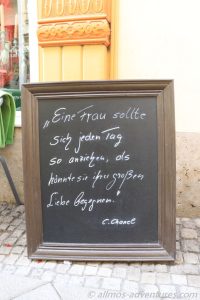 „Eine Frau sollte
sich jeden Tag
so anziehen, als
könnte sie ihrer großen
Liebe begegnen."
C. Chanel
© allmos-adventures.com